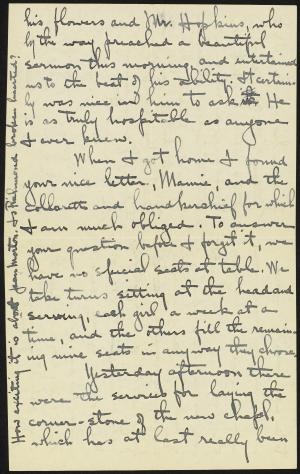 his flowers and Mr. Hopkins, who
by the way preached a beautiful
sermon this morning, and entertained
us to the best of his ability. It certain-
ly was nice in him to ask us. He
is as truly hospitable as anyone
I ever knew.
When I got home I found
your nice letter, Mamie, and the
collarette and handkerchief for which
I am much obliged. To answer
your question before I forget it, we
have no special seats at table. We
take turns sitting at the head and
serving, each girl a week at a
time, and the others fill the remain-
ing nine seats in anyway they choose.
Yesterday afternoon there
were the services for laying the
corner-stone of the new chapel,
which has at last really been
How exciting it is about Jean Morton. Is Richmond broken hearted?